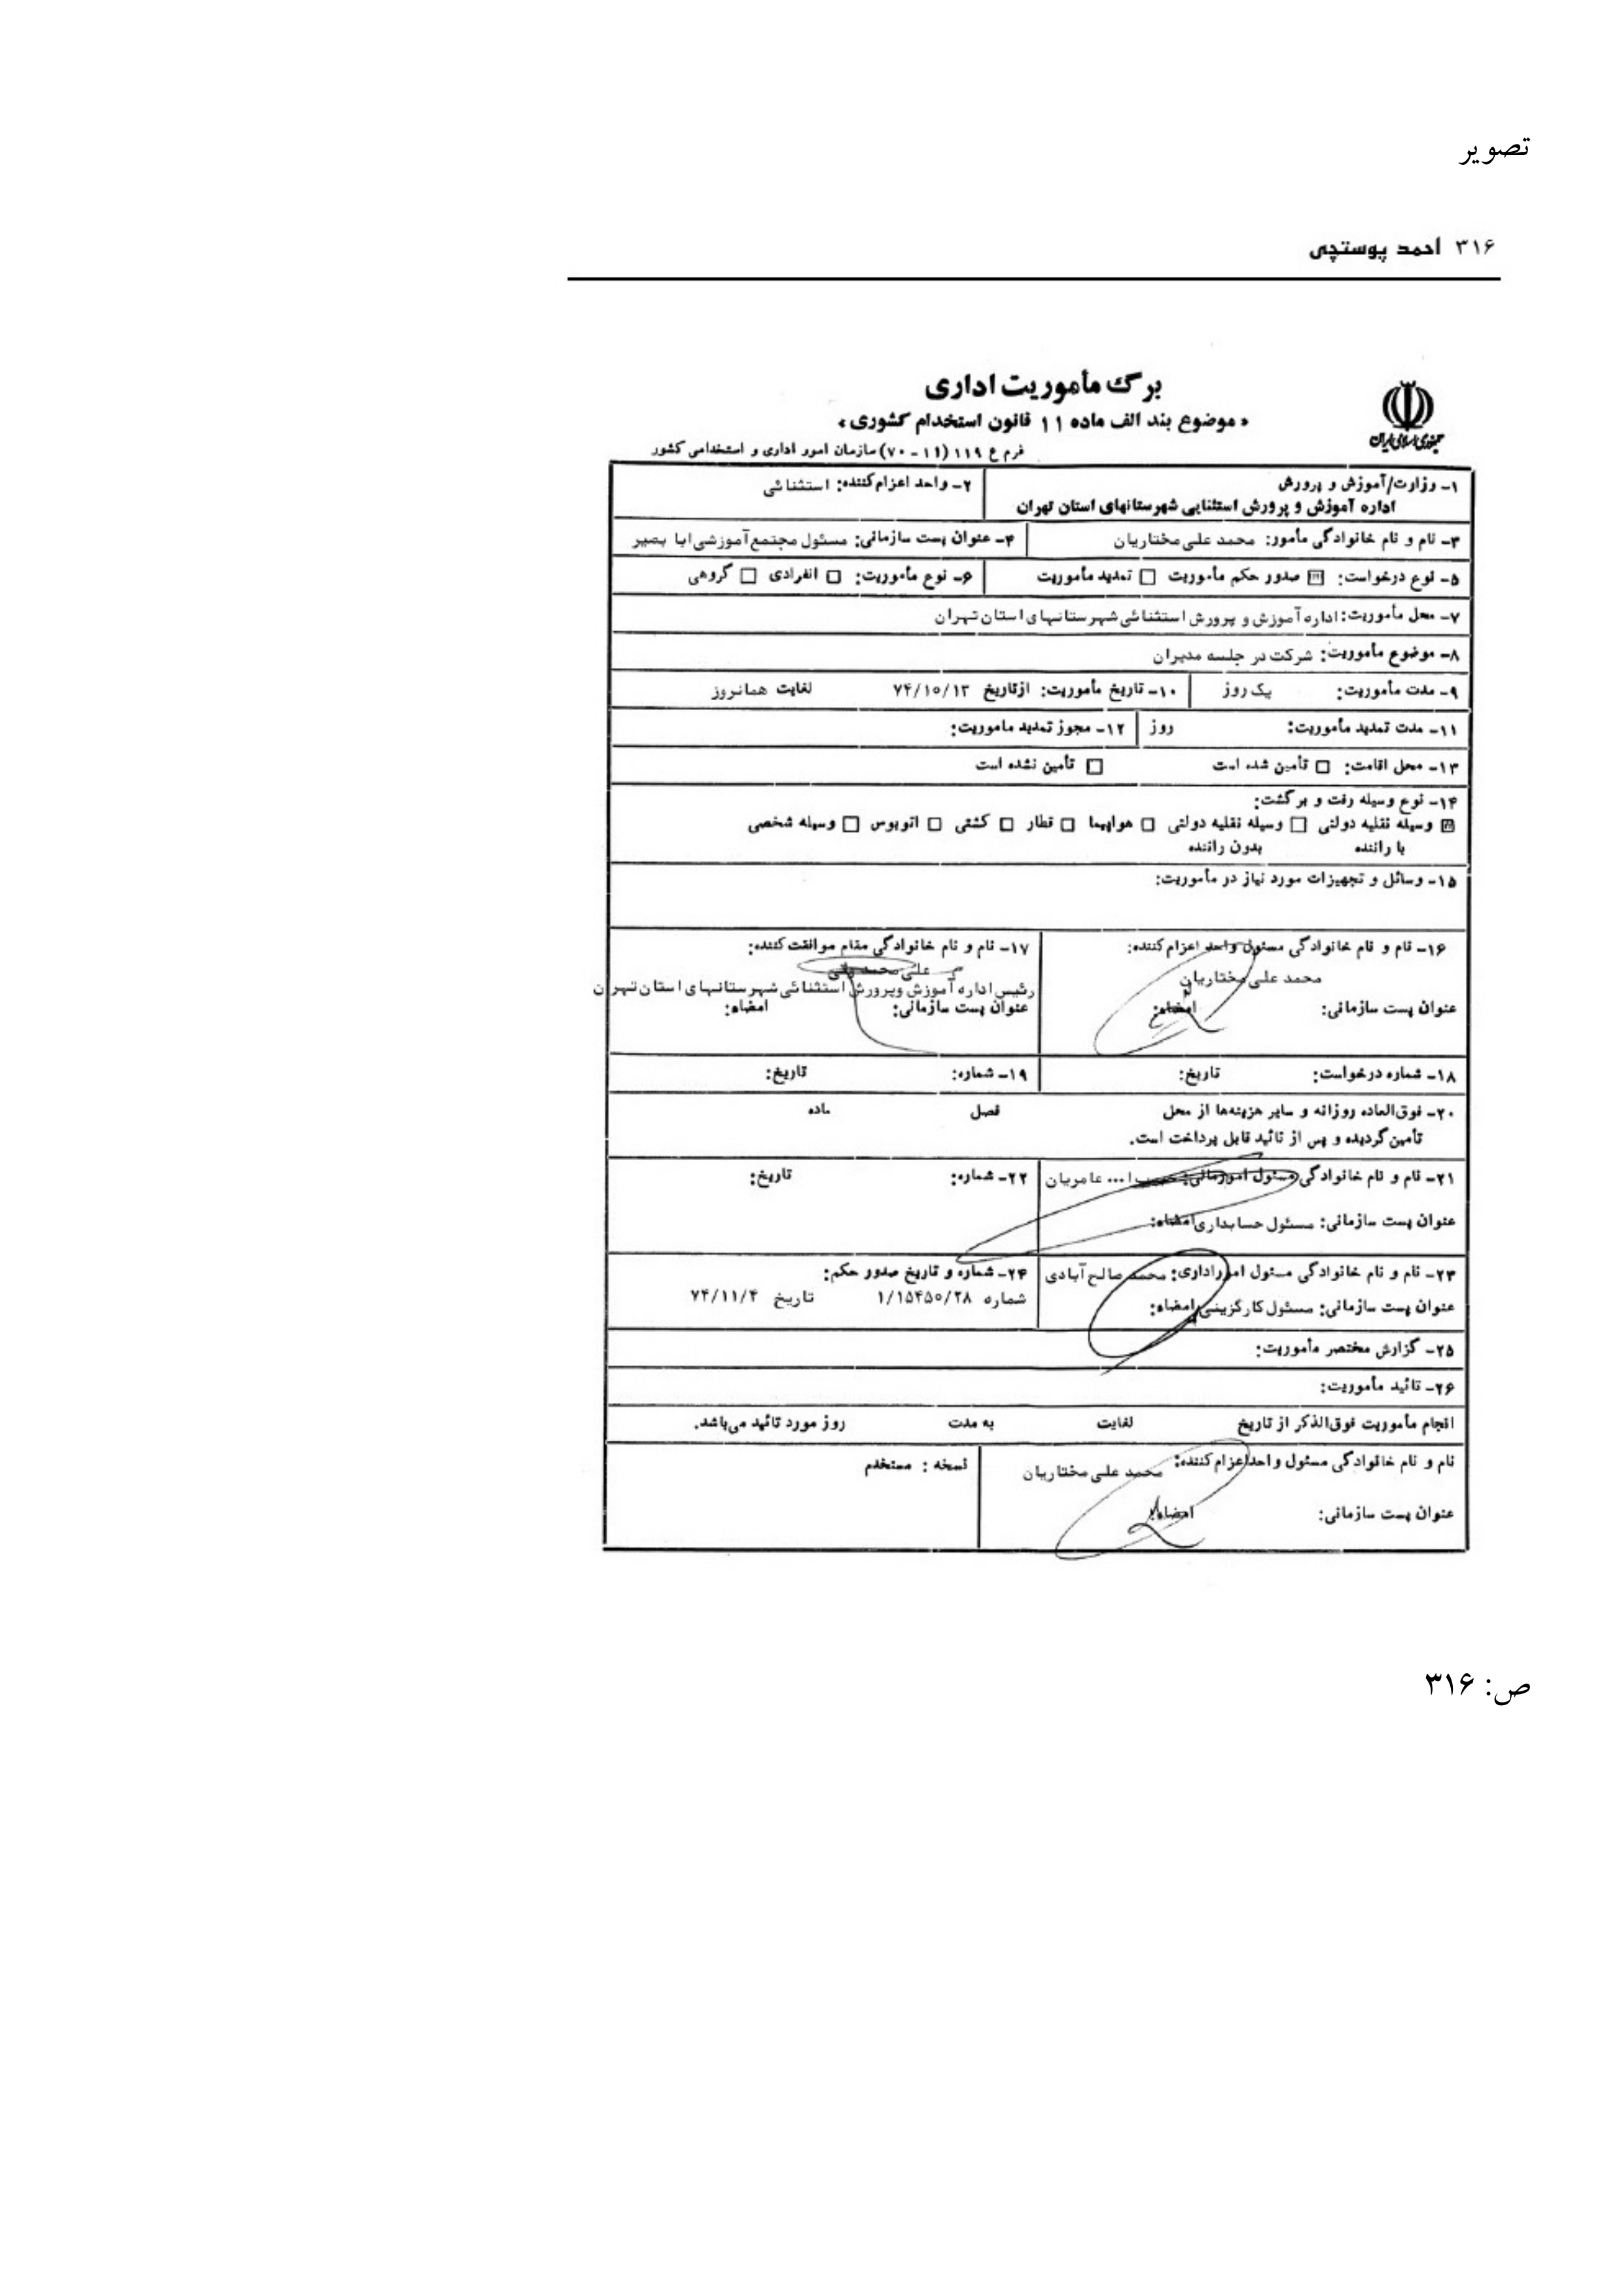 تصویر
۳۱۶ احمد پوستچی
برگ مأموریت اداری
« موضوع بند الف ماده ۱۱ قانون استخدام کشوری »
جمهوری اسلامی ایران
فرم ع ۱۱۹ (۱۱ - ۷۰) سازمان امور اداری و استخدامی کشور
۱- وزارت/آموزش و پرورش
اداره آموزش و پرورش استثنایی شهرستانهای استان تهران
۲- واحد اعزام‌کننده: استثنائی
۳- نام و نام خانوادگی مأمور: محمد علی مختاریان
۴- عنوان پست سازمانی: مسئول مجتمع آموزشی ابا بصیر
۵- نوع درخواست: صدور حکم مأموریت □ تمدید مأموریت
۶- نوع مأموریت: □ انفرادی □ گروهی
۷- محل مأموریت: اداره آموزش و پرورش استثنائی شهرستانهای استان تهران
۸- موضوع مأموریت: شرکت در جلسه مدیران
۹- مدت مأموریت: یک روز
۱۰- تاریخ مأموریت: از تاریخ ۷۴/۱۰/۱۳ لغایت همانروز
۱۱- مدت تمدید مأموریت: روز
۱۲- مجوز تمدید ماموریت:
۱۳- محل اقامت: □ تأمین شده است □ تأمین نشده است
۱۴- نوع وسیله رفت و برگشت:
وسیله نقلیه دولتی □ وسیله نقلیه دولتی □ هواپیما □ قطار □ کشتی □ اتوبوس □ وسیله شخصی
با راننده بدون راننده
۱۵- وسائل و تجهیزات مورد نیاز در مأموریت:
۱۶- نام و نام خانوادگی مسئول واحد اعزام‌کننده:
محمد علی مختاریان
عنوان پست سازمانی: امضاء:
۱۷- نام و نام خانوادگی مقام موافقت کننده:
علی محمد
رئیس اداره آموزش وپرورش استثنائی شهرستانهای استان تهران
عنوان پست سازمانی: امضاء:
۱۸- شماره درخواست: تاریخ:
۱۹- شماره: تاریخ:
۲۰- فوق‌العاده روزانه و سایر هزینه‌ها از محل فصل ماده
تأمین گردیده و پس از تائید قابل پرداخت است.
۲۱- نام و نام خانوادگی مسئول امورمالی: ا... عامریان
عنوان پست سازمانی: مسئول حسابداری امضاء:
۲۲- شماره: تاریخ:
۲۳- نام و نام خانوادگی مسئول امور اداری: محمد صالح آبادی
عنوان پست سازمانی: مسئول کارگزینی امضاء:
۲۴- شماره و تاریخ صدور حکم:
شماره ۱/۱۵۴۵۰/۲۸ تاریخ ۷۴/۱۱/۴
۲۵- گزارش مختصر مأموریت:
۲۶- تائید مأموریت:
انجام مأموریت فوق‌الذکر از تاریخ لغایت به مدت روز مورد تائید می‌باشد.
نام و نام خانوادگی مسئول واحد اعزام‌کننده: محمد علی مختاریان
عنوان پست سازمانی: امضاء:
نسخه : مستخدم
ص: ۳۱۶